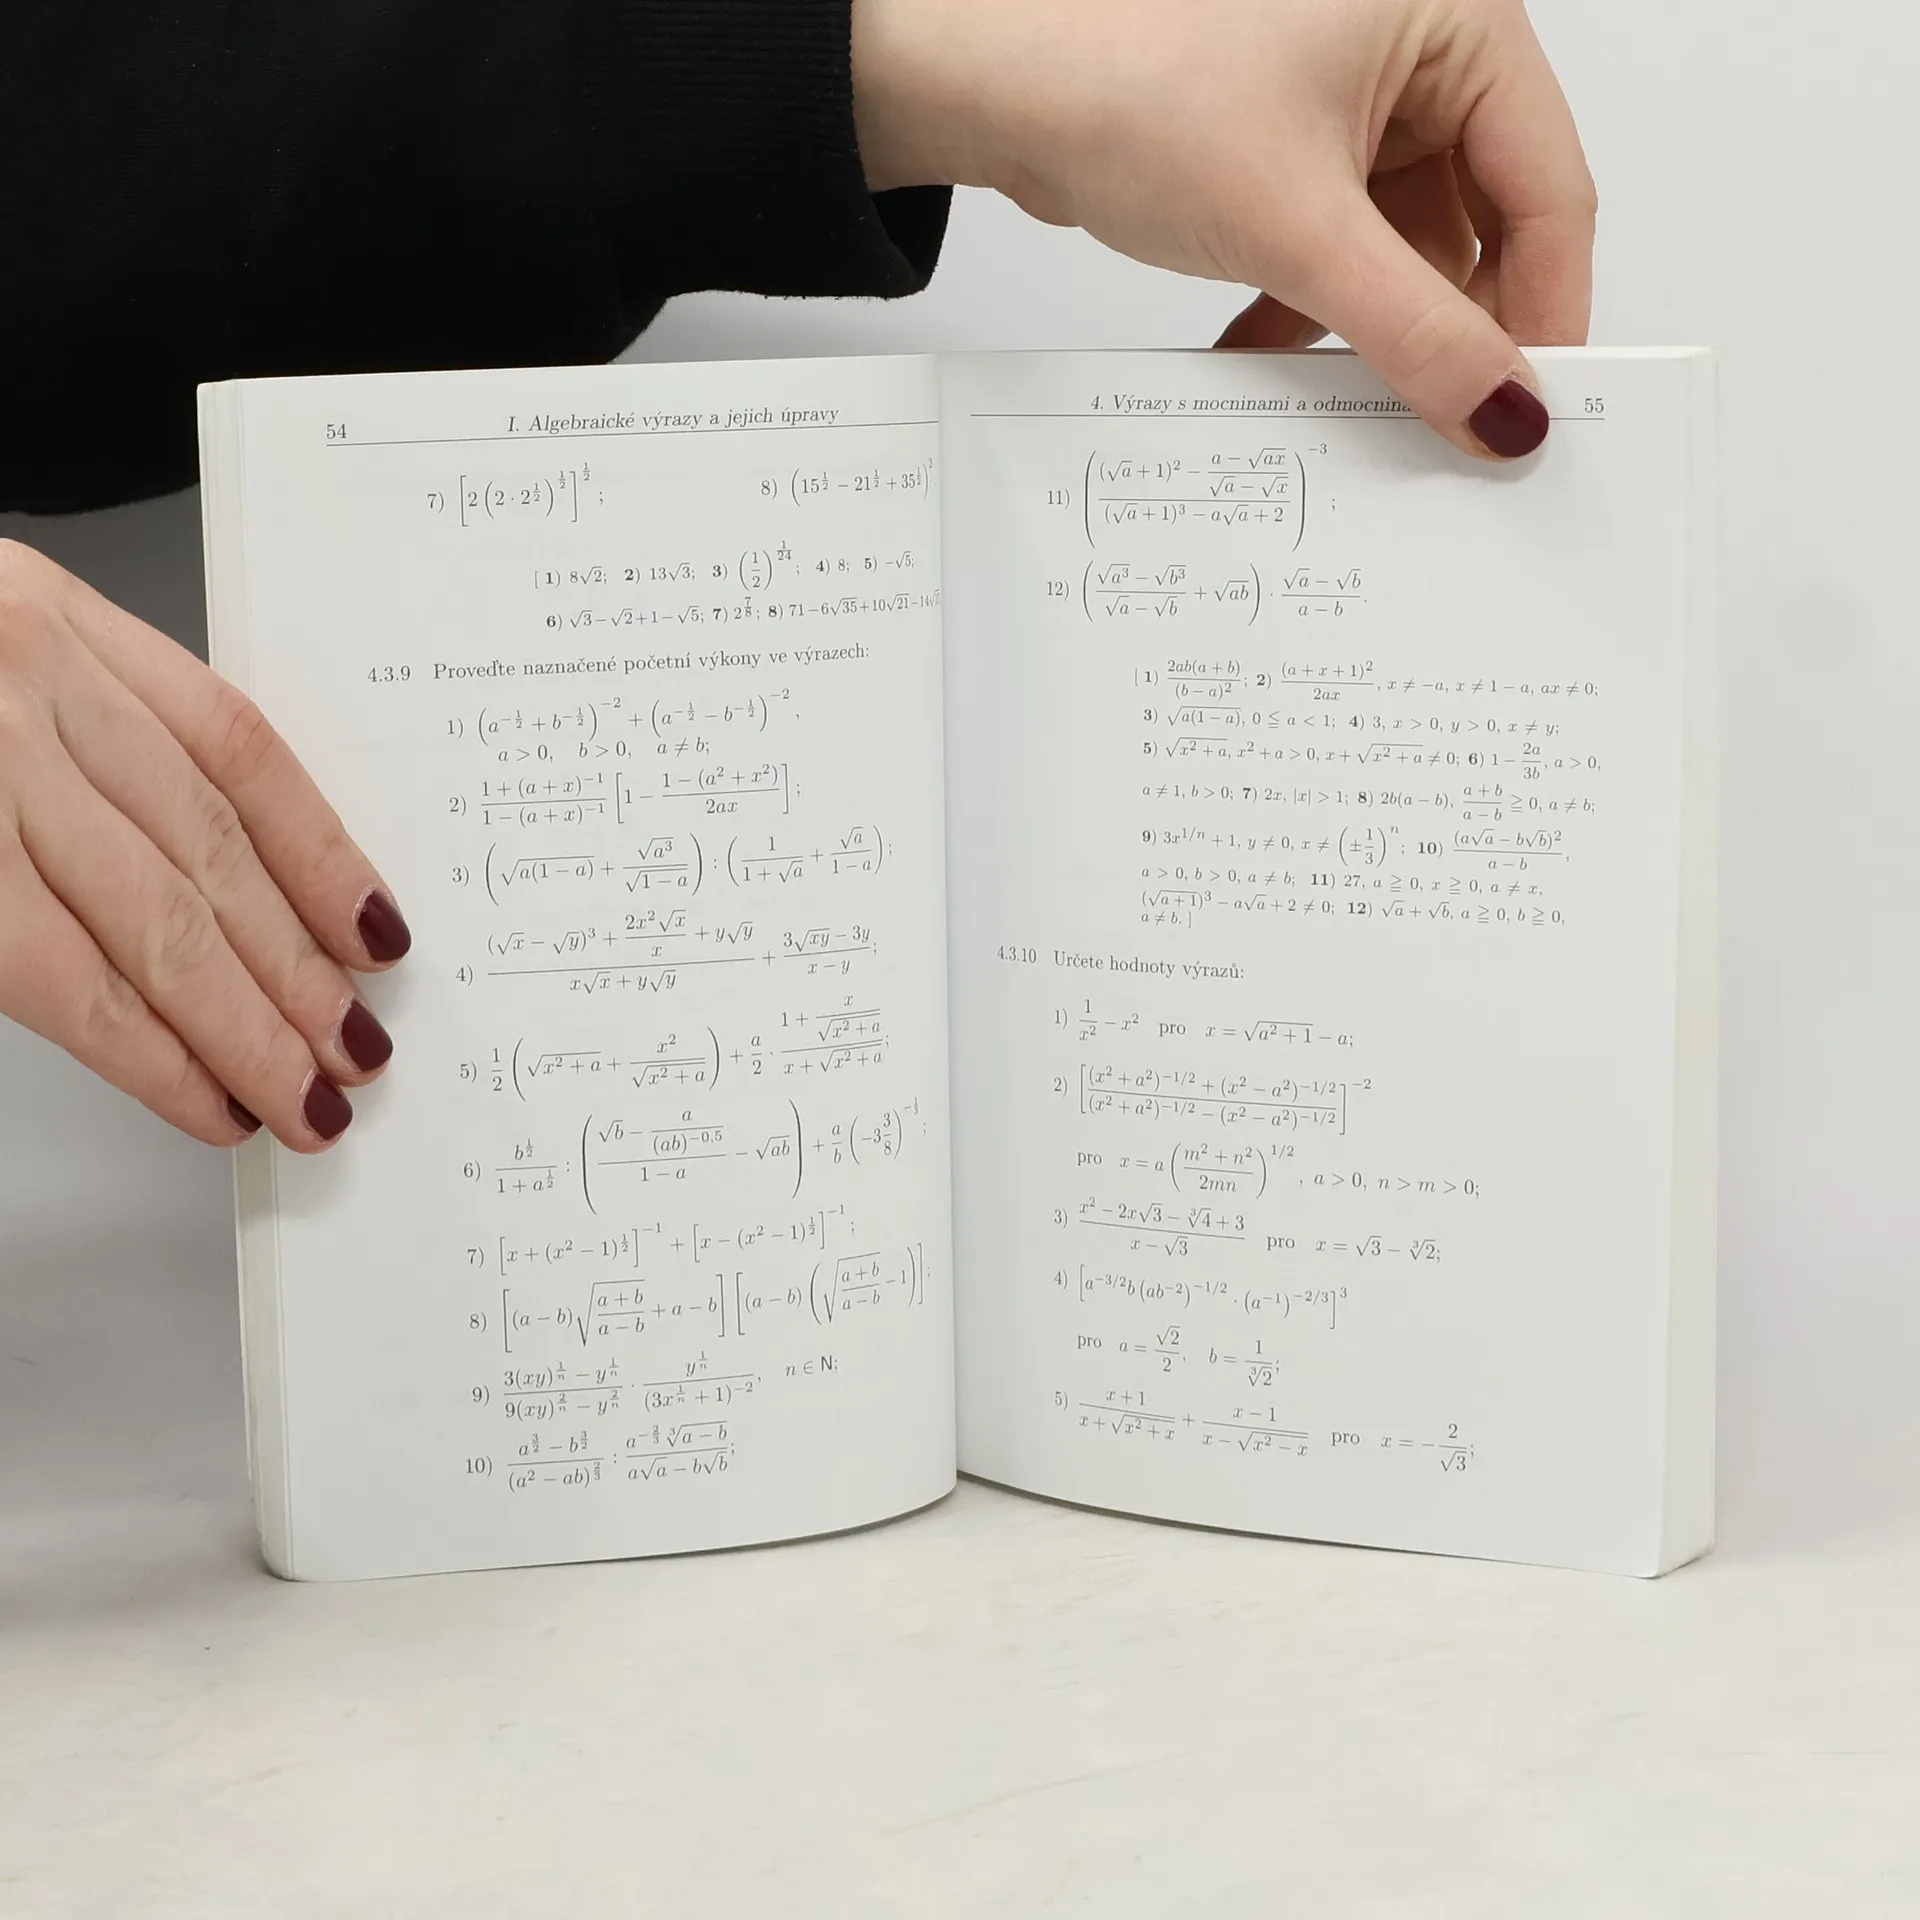 54 I. Algebraické výrazy a jejich úpravy
7) [2(2·2^{1/2})^{1/2}]^{1/2}; 8) (15^{1/2} − 21^{1/2} + 35^{1/2})^2
[ 1) 8√2; 2) 13√3; 3) (1/2)^{1/24}; 4) 8; 5) −√5;
6) √3−√2+1−√5; 7) 2^{7/8}; 8) 71−6√35+10√21−14√
4.3.9 Proveďte naznačené početní výkony ve výrazech:
1) (a^{−1/2} + b^{−1/2})^{−2} + (a^{−1/2} − b^{−1/2})^{−2},
a > 0, b > 0, a ≠ b;
2) (1 + (a + x)^{−1})/(1 − (a + x)^{−1}) [1 − (1 − (a² + x²))/(2ax)];
3) (√(a(1 − a)) + √(a³)/√(1 − a)) : (1/(1 + √a) + √a/(1 − a));
4) ((√x − √y)³ + 2x²√x/x + y√y)/(x√x + y√y) + (3√(xy) − 3y)/(x − y);
5) 1/2 (√(x² + a) + x²/√(x² + a)) + a/2 · (1 + x/√(x² + a))/(x + √(x² + a));
6) b^{1/2}/(1 + a^{1/2}) : ((√b − a/(ab)^{−0,5})/(1 − a) − √(ab)) + a/b (−3 3/8)^{−1/3};
7) [x + (x² − 1)^{1/2}]^{−1} + [x − (x² − 1)^{1/2}]^{−1};
8) [(a − b)√((a + b)/(a − b)) + a − b] [(a − b)(√((a + b)/(a − b)) − 1)];
9) (3(xy)^{1/n} − y^{1/n})/(9(xy)^{2/n} − y^{2/n}) · y^{1/n}/(3x^{1/n} + 1)^{−2}, n ∈ N;
10) (a^{3/2} − b^{3/2})/(a² − ab)^{2/3} : (a^{−2/3} ∛(a − b))/(a√a − b√b);
4. Výrazy s mocninami a 55
11) (((√a + 1)² − (a − √(ax))/(√a − √x))/((√a + 1)³ − a√a + 2))^{−3};
12) ((√(a³) − √(b³))/(√a − √b) + √(ab)) · (√a − √b)/(a − b).
[ 1) 2ab(a + b)/(b − a)²; 2) (a + x + 1)²/(2ax), x ≠ −a, x ≠ 1 − a, ax ≠ 0;
3) √(a(1 − a)), 0 ≦ a < 1; 4) 3, x > 0, y > 0, x ≠ y;
5) √(x² + a), x² + a > 0, x + √(x² + a) ≠ 0; 6) 1 − 2a/(3b), a > 0,
a ≠ 1, b > 0; 7) 2x, |x| > 1; 8) 2b(a − b), (a + b)/(a − b) ≧ 0, a ≠ b;
9) 3x^{1/n} + 1, y ≠ 0, x ≠ (±1/3)^n; 10) (a√a − b√b)²/(a − b),
a > 0, b > 0, a ≠ b; 11) 27, a ≧ 0, x ≧ 0, a ≠ x,
(√a + 1)³ − a√a + 2 ≠ 0; 12) √a + √b, a ≧ 0, b ≧ 0,
a ≠ b. ]
4.3.10 Určete hodnoty výrazů:
1) 1/x² − x² pro x = √(a² + 1) − a;
2) [((x² + a²)^{−1/2} + (x² − a²)^{−1/2})/((x² + a²)^{−1/2} − (x² − a²)^{−1/2})]^{−2}
pro x = a((m² + n²)/(2mn))^{1/2}, a > 0, n > m > 0;
3) (x² − 2x√3 − ∛4 + 3)/(x − √3) pro x = √3 − ∛2;
4) [a^{−3/2}b(ab^{−2})^{−1/2} · (a^{−1})^{−2/3}]³
pro a = √2/2, b = 1/∛2;
5) (x + 1)/(x + √(x² + x)) + (x − 1)/(x − √(x² − x)) pro x = −2/√3;